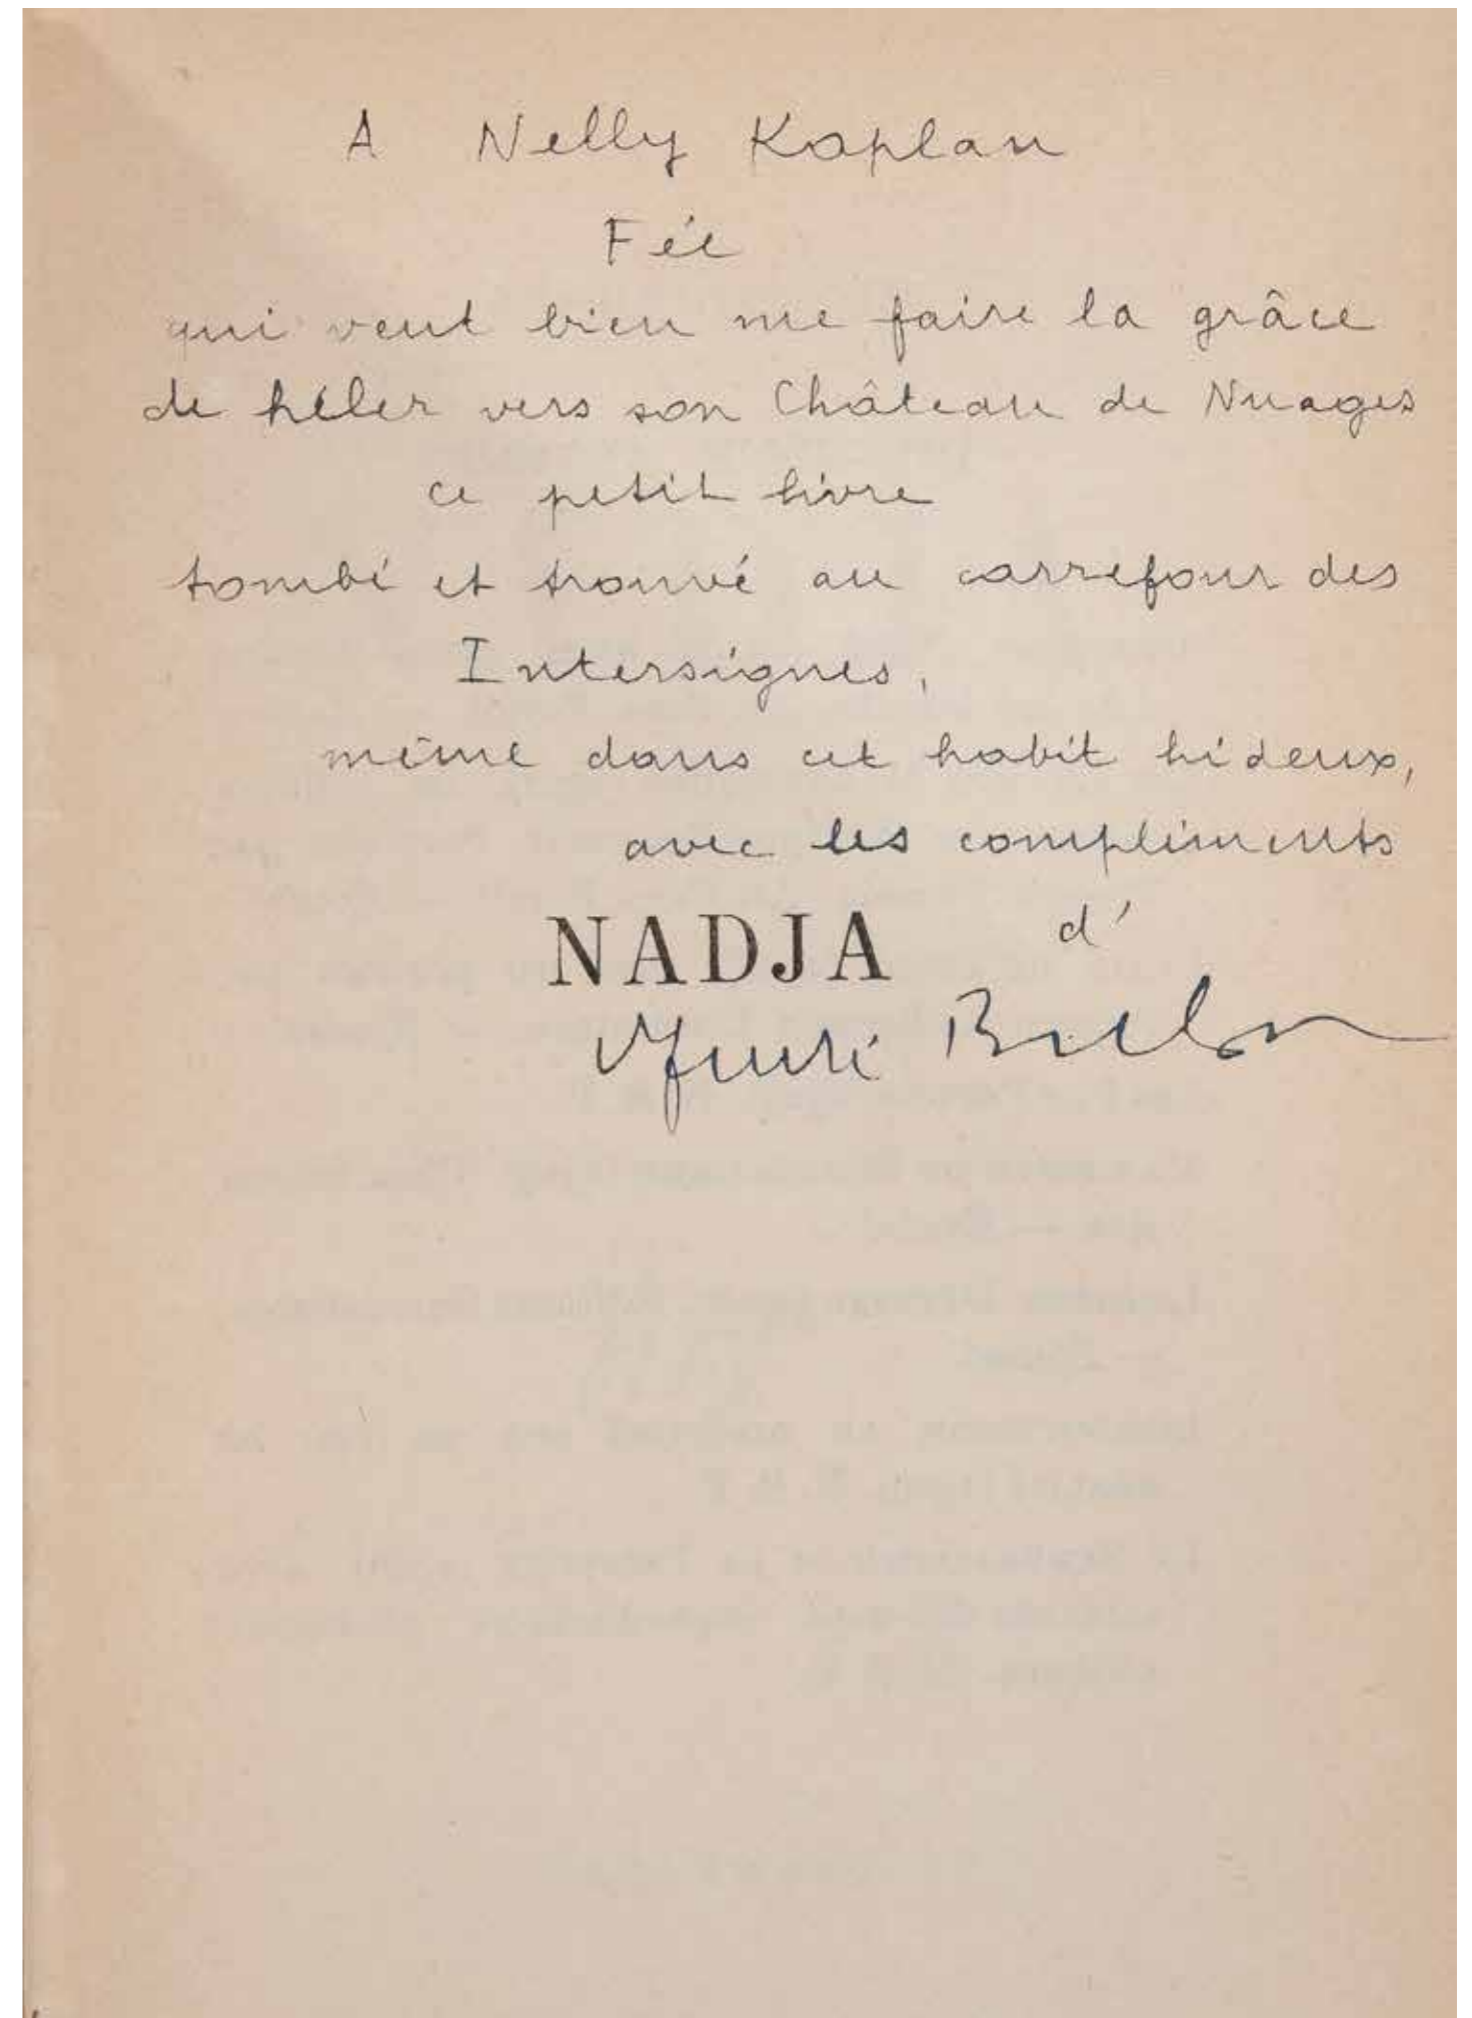 A Nelly Kaplan
Fée
qui veut bien me faire la grâce
de héler vers son Château de Nuages
ce petit livre
tombé et trouvé au carrefour des
Intersignes,
même dans cet habit hideux,
avec les compliments
d'
NADJA
André Breton